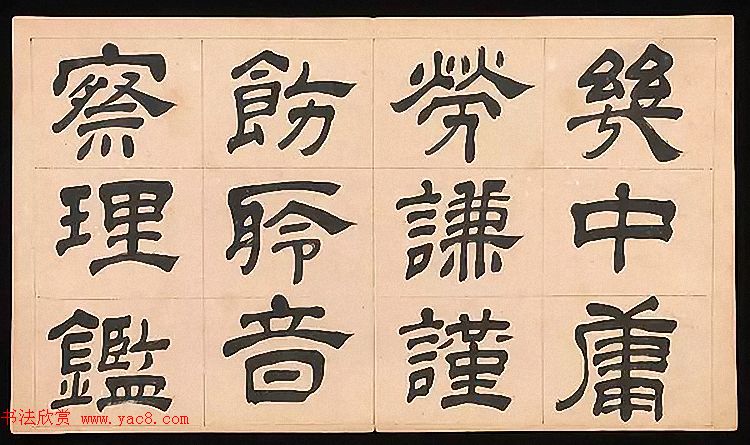 幾中庸
勞謙謹
飭聆音
察理鑑
书法欣赏 www.yac8.com